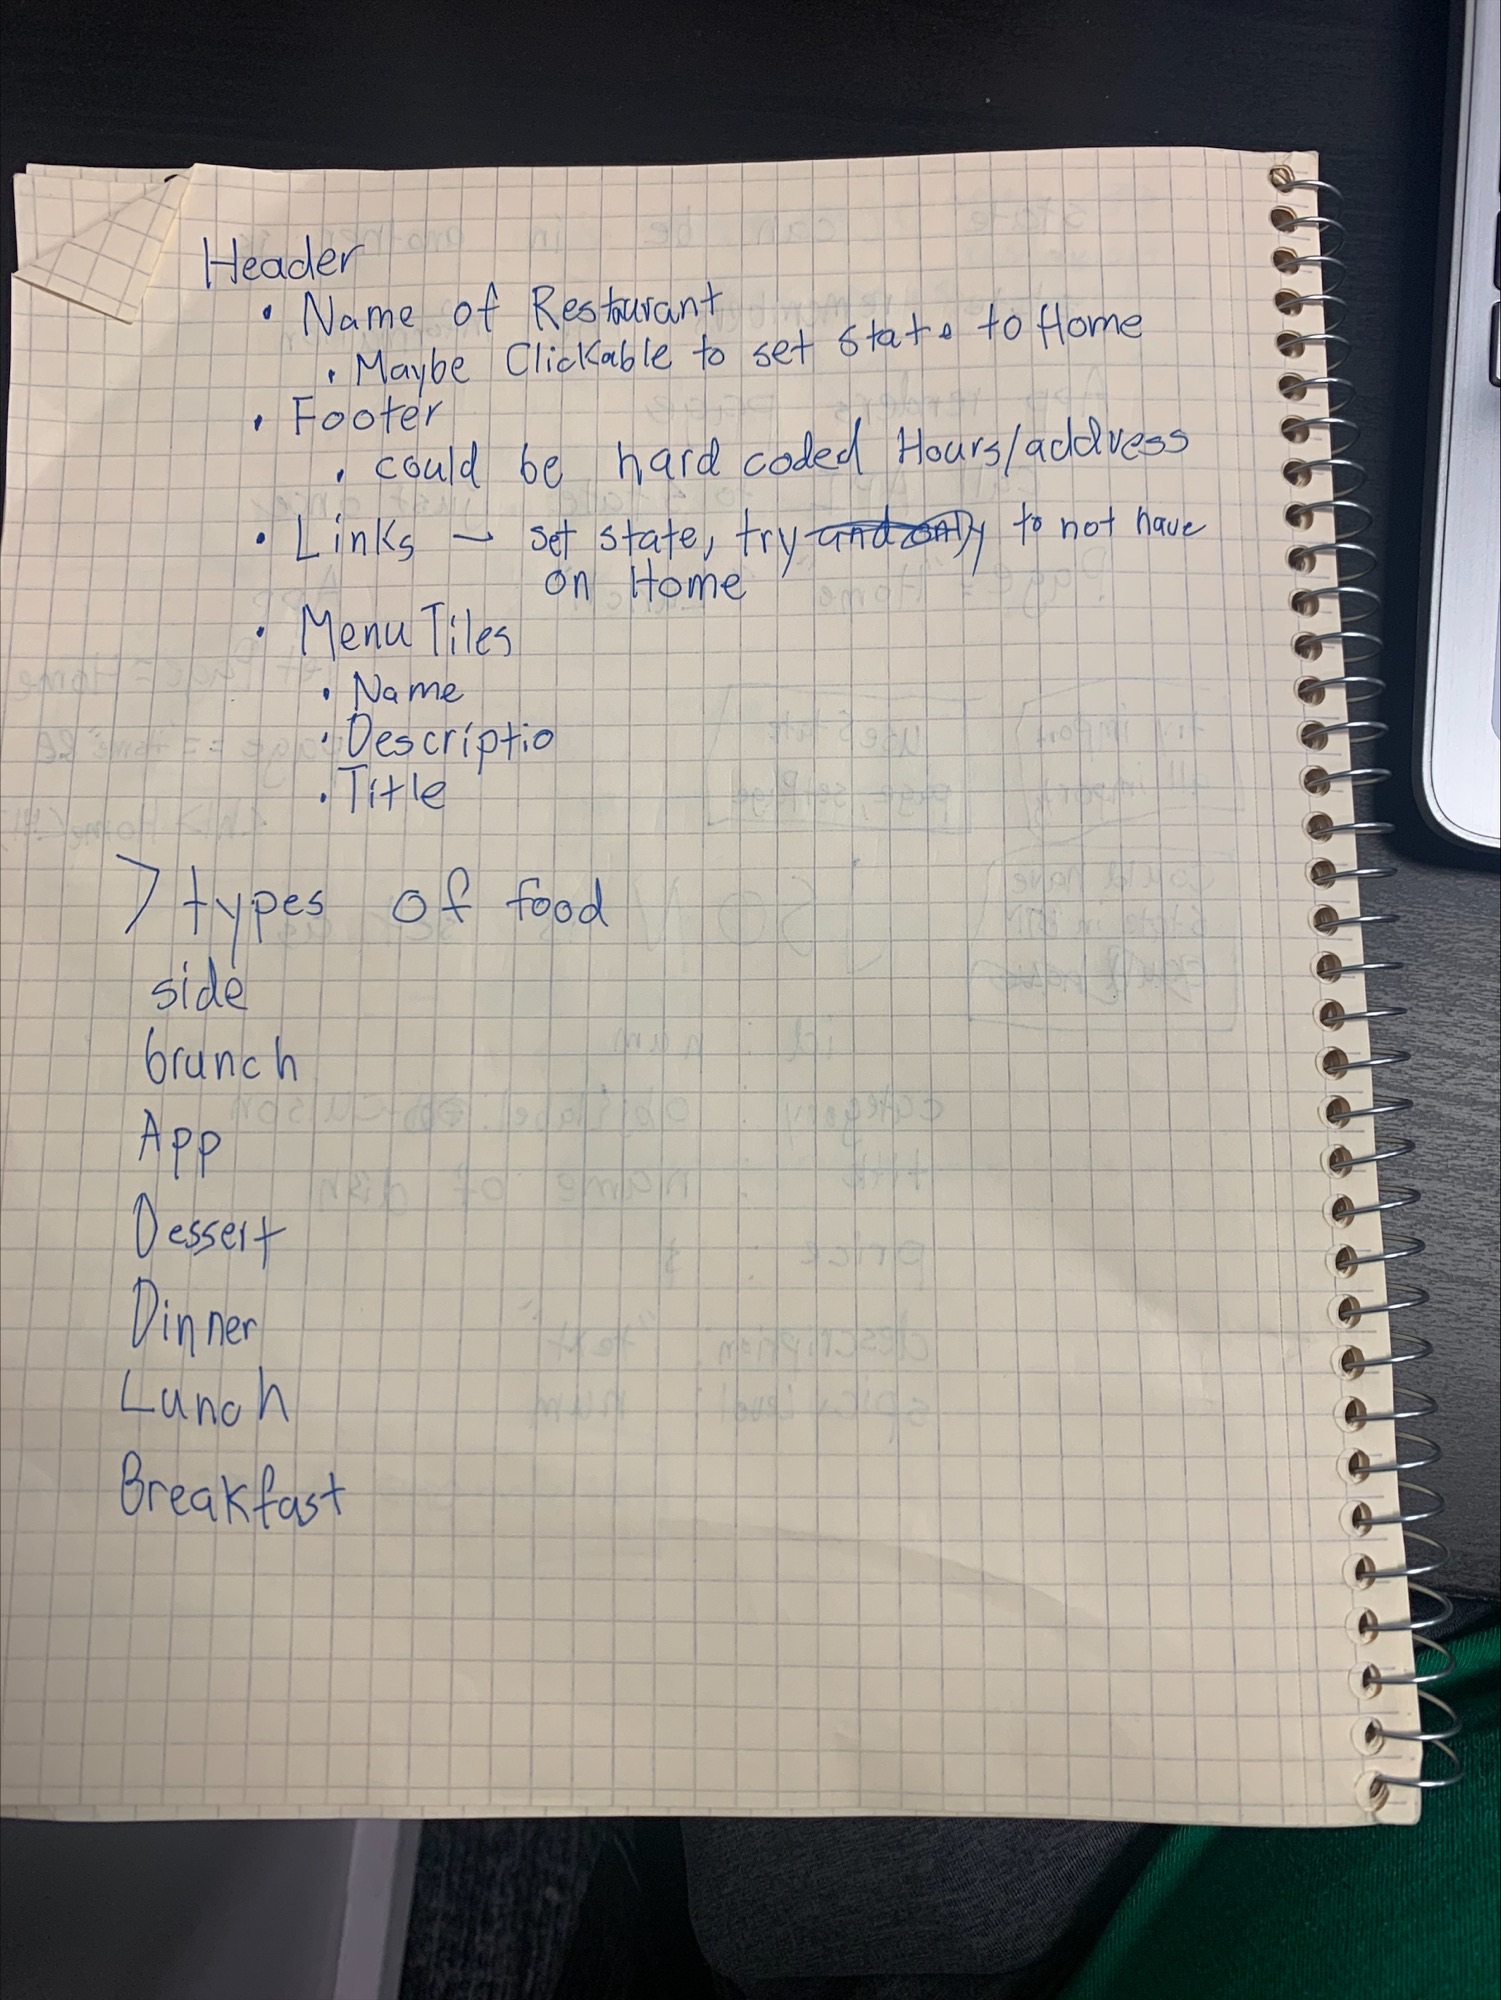 Header
• Name of Restaurant
• Maybe Clickable to set state to Home
• Footer
• could be hard coded Hours/address
• Links → set state, try and only to not have
on Home
• Menu Tiles
• Name
• Descriptio
• Title
7 types of food
side
brunch
App
Dessert
Dinner
Lunch
Breakfast